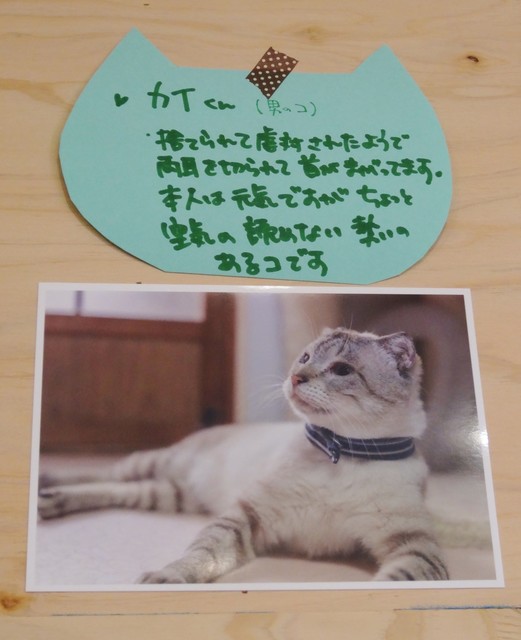 ♥ カイくん (男のコ)
・捨てられて虐待されたようで
両耳を切られて 首がまがってます。
本人は元気ですが ちょっと
空気の読めない 勢いの
あるコです